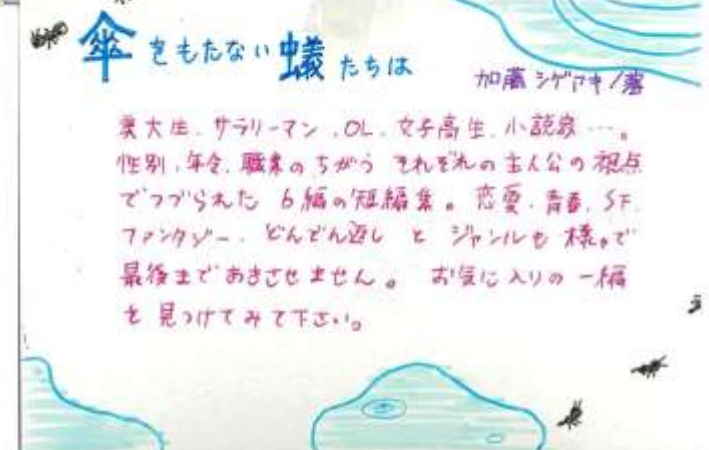 傘をもたない蟻たちは
加藤シゲアキ/著
美大生、サラリーマン、OL、女子高生、小説家…。
性別、年令、職業のちがう それぞれの主人公の視点
でつづられた 6編の短編集。恋愛、青春、SF、
ファンタジー、どんでん返し と ジャンルも 様々で
最後まであきさせません。 お気に入りの一編
を 見つけてみて下さい。